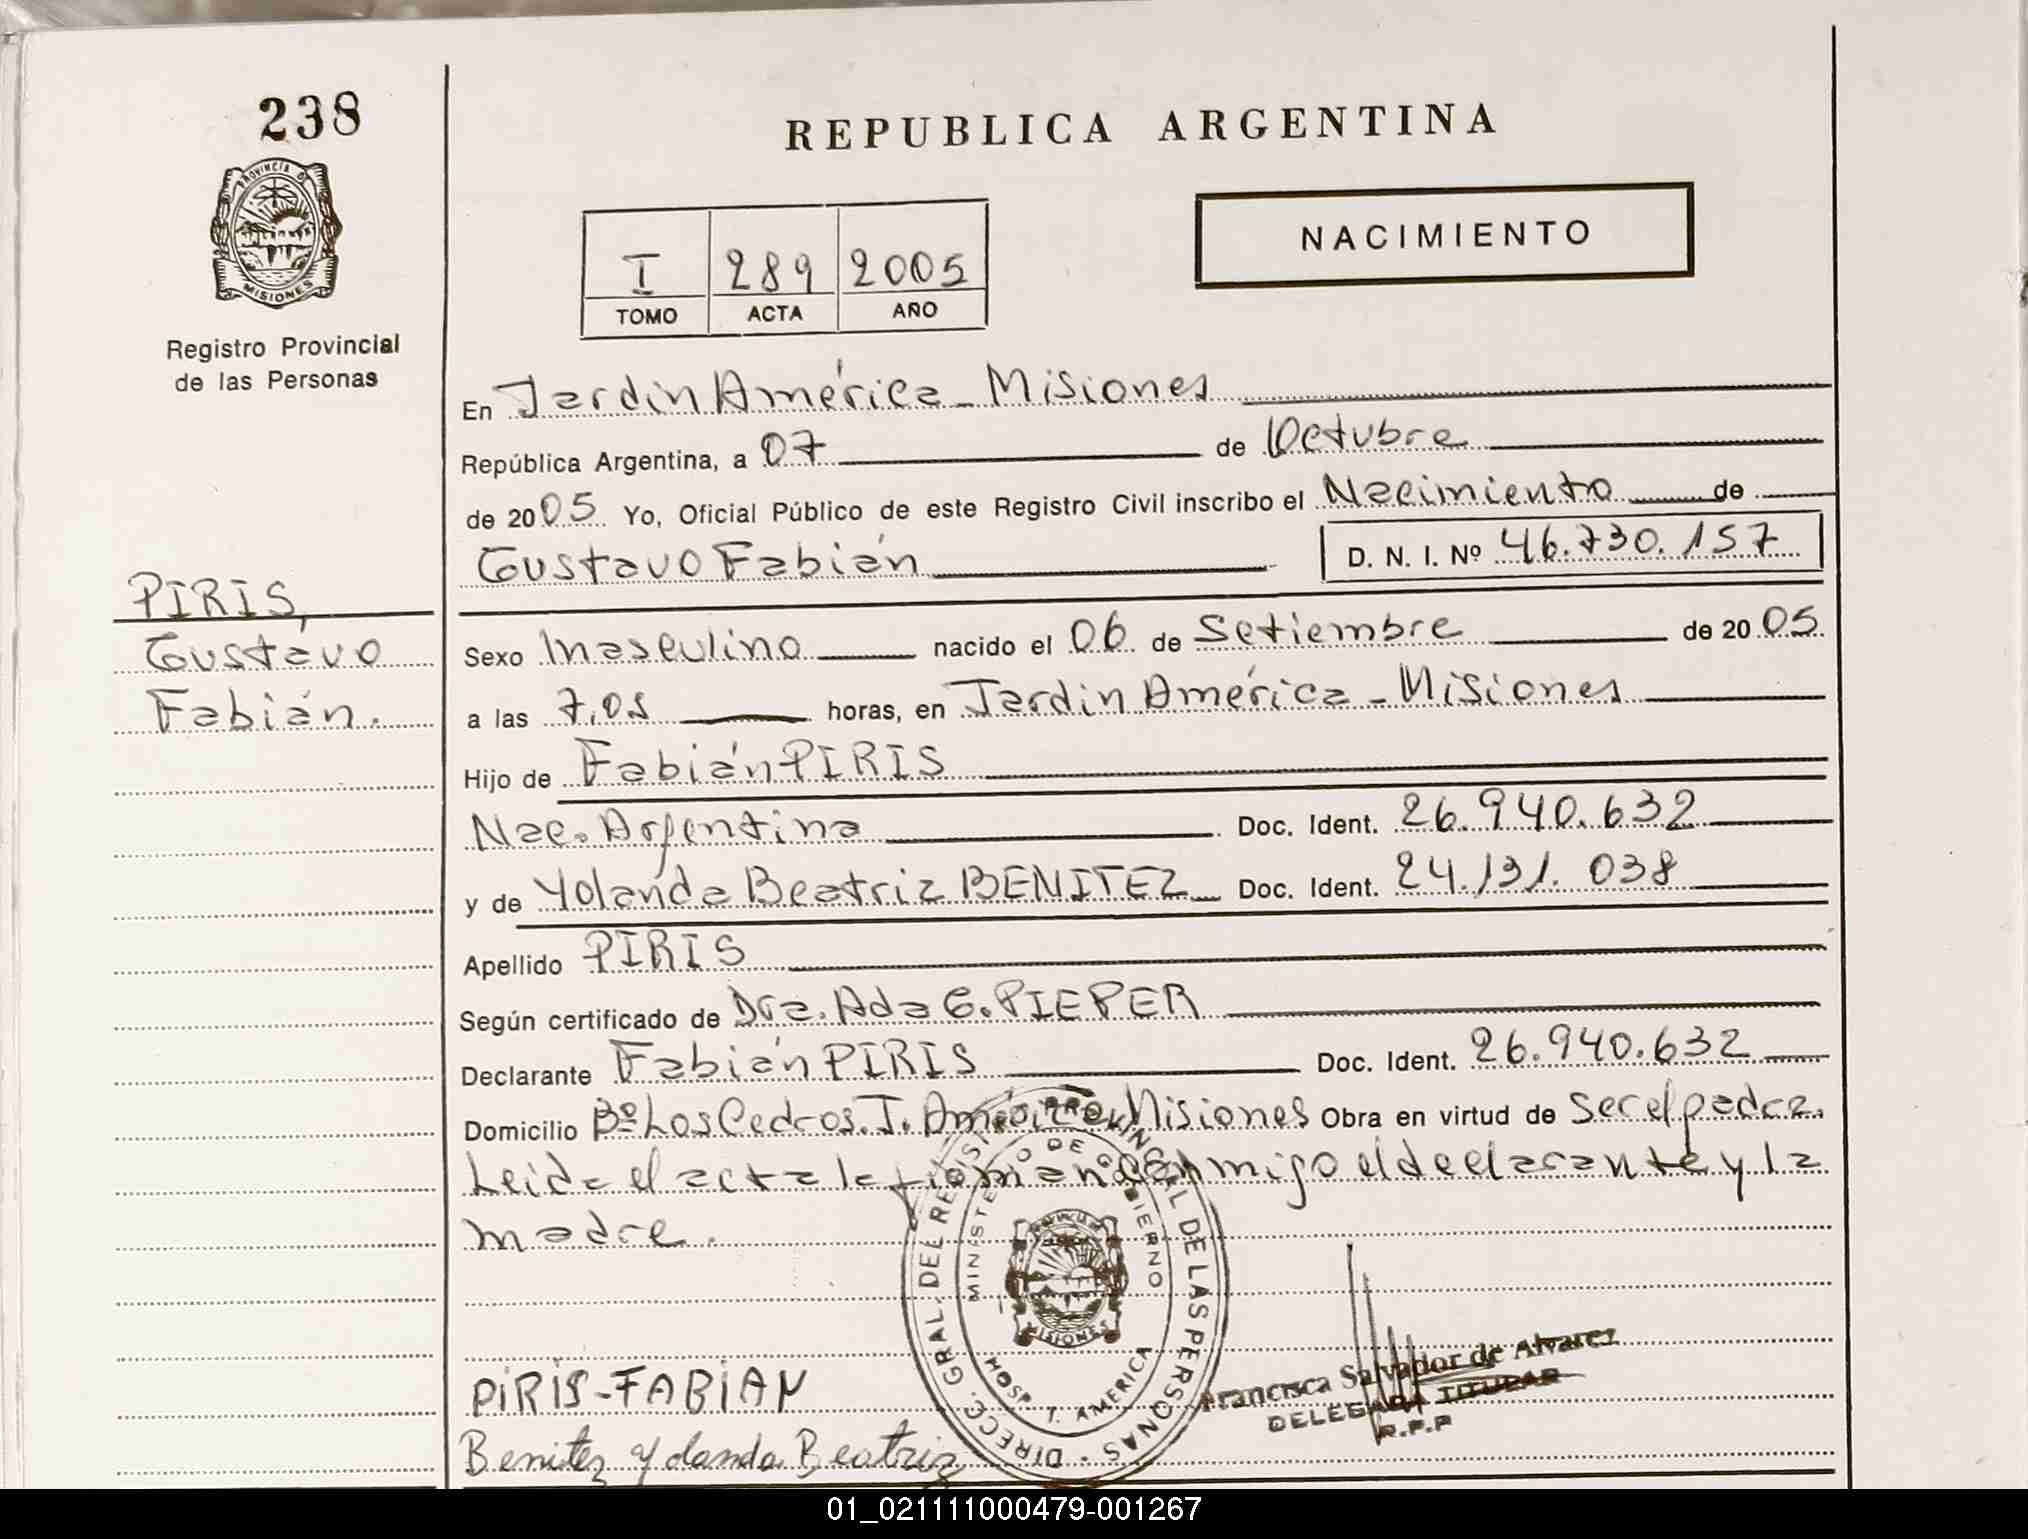 238
PROVINCIA DE
MISIONES
Registro Provincial
de las Personas
REPUBLICA ARGENTINA
I 289 2005
TOMO ACTA AÑO
NACIMIENTO
En Jardín América - Misiones
República Argentina, a 07 de Octubre
de 2005 Yo, Oficial Público de este Registro Civil inscribo el Nacimiento de
Gustavo Fabián D. N. I. Nº 46.730.157
PIRIS,
Gustavo
Fabián.
Sexo masculino nacido el 06 de Setiembre de 2005
a las 7,05 horas, en Jardín América - Misiones
Hijo de Fabián PIRIS
Nac. Argentina Doc. Ident. 26.940.632
y de Yolanda Beatriz BENITEZ Doc. Ident. 24.131.038
Apellido PIRIS
Según certificado de Dra. Ada G. PIEPER
Declarante Fabián PIRIS Doc. Ident. 26.940.632
Domicilio Bº Los Cedros. J. América Misiones Obra en virtud de Ser el padre.
Leida el acta la firman conmigo el declarante y la
madre.
DIRECC. GRAL. DEL REGISTRO PROVINCIAL DE LAS PERSONAS
MINISTERIO DE GOBIERNO
MISIONES
HOSP. J. AMERICA
PIRIS-FABIAN
Benitez Yolanda Beatriz
Francisca Salvador de Alvarez
DELEGADA TITULAR
R.P.P
01_021111000479-001267